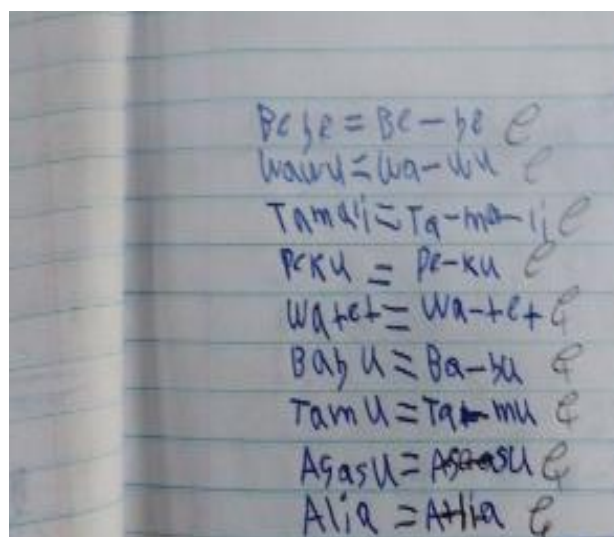 Bebe = Be-be
Wawu = Wa-wu
Tamaii = Ta-ma-ii
Peku = Pe-ku
Watet = Wa-tet
Babu = Ba-bu
Tamu = Ta-mu
Asasu =
Alia =